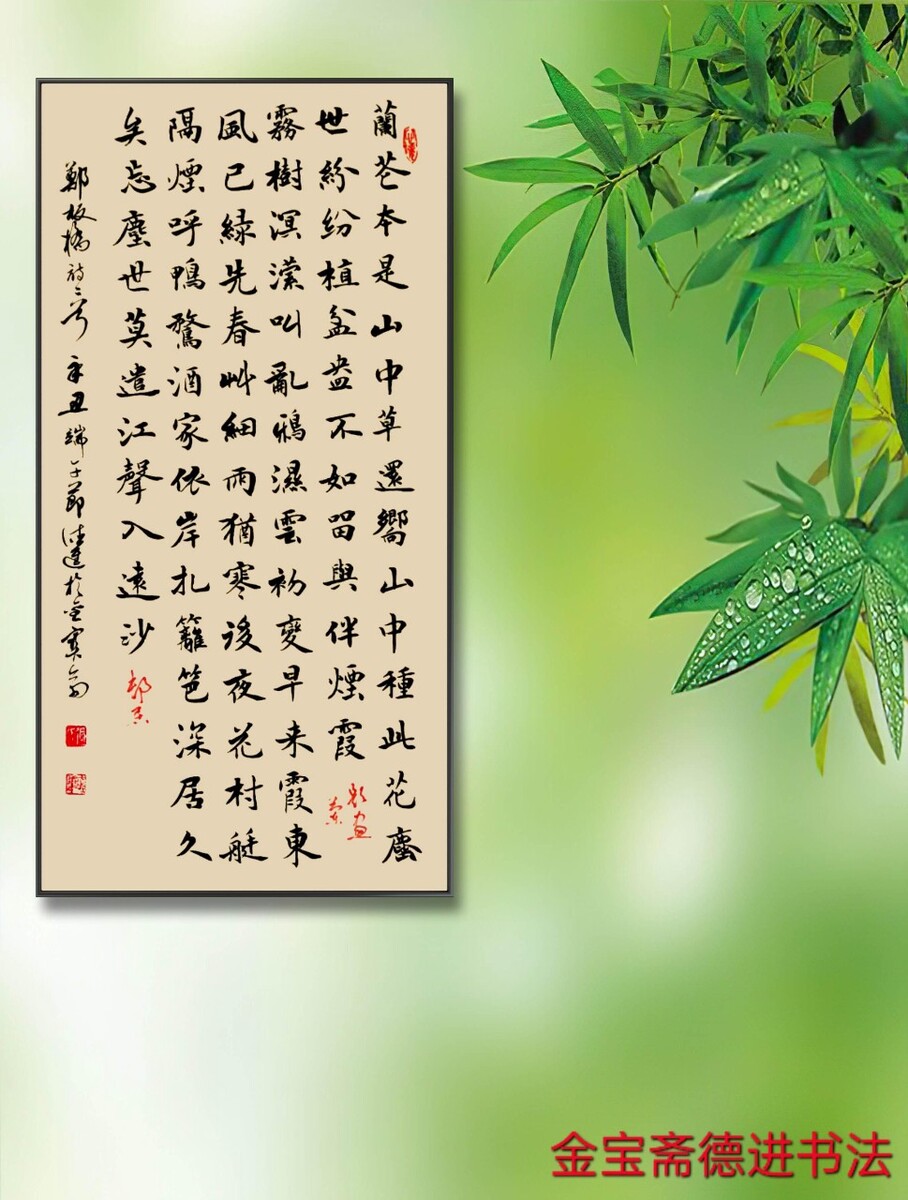 蘭花本是山中草還嚮山中種此花塵
世紛紛植盆盎不如留與伴煙霞
題画蘭
霧樹溟濛叫亂鴉濕雲初變早来霞東
風已緑先春艸細雨猶寒後夜花村艇
隔煙呼鴨鶩酒家依岸扎籬笆深居久
矣忘塵世莫遣江聲入遠沙
邨居
鄭板橋詩二首辛丑端午節德進於金寶斋
金宝斋德进书法